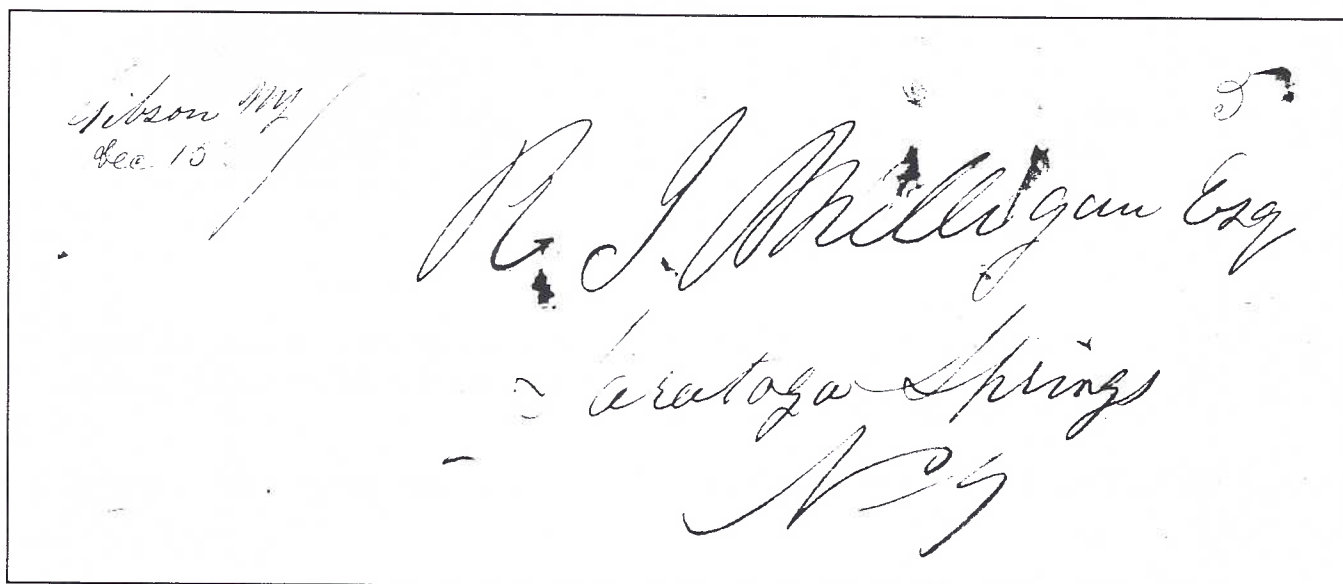 Gibson NY
Dec 15
5
R. J. Milligan Esq
Saratoga Springs
NY